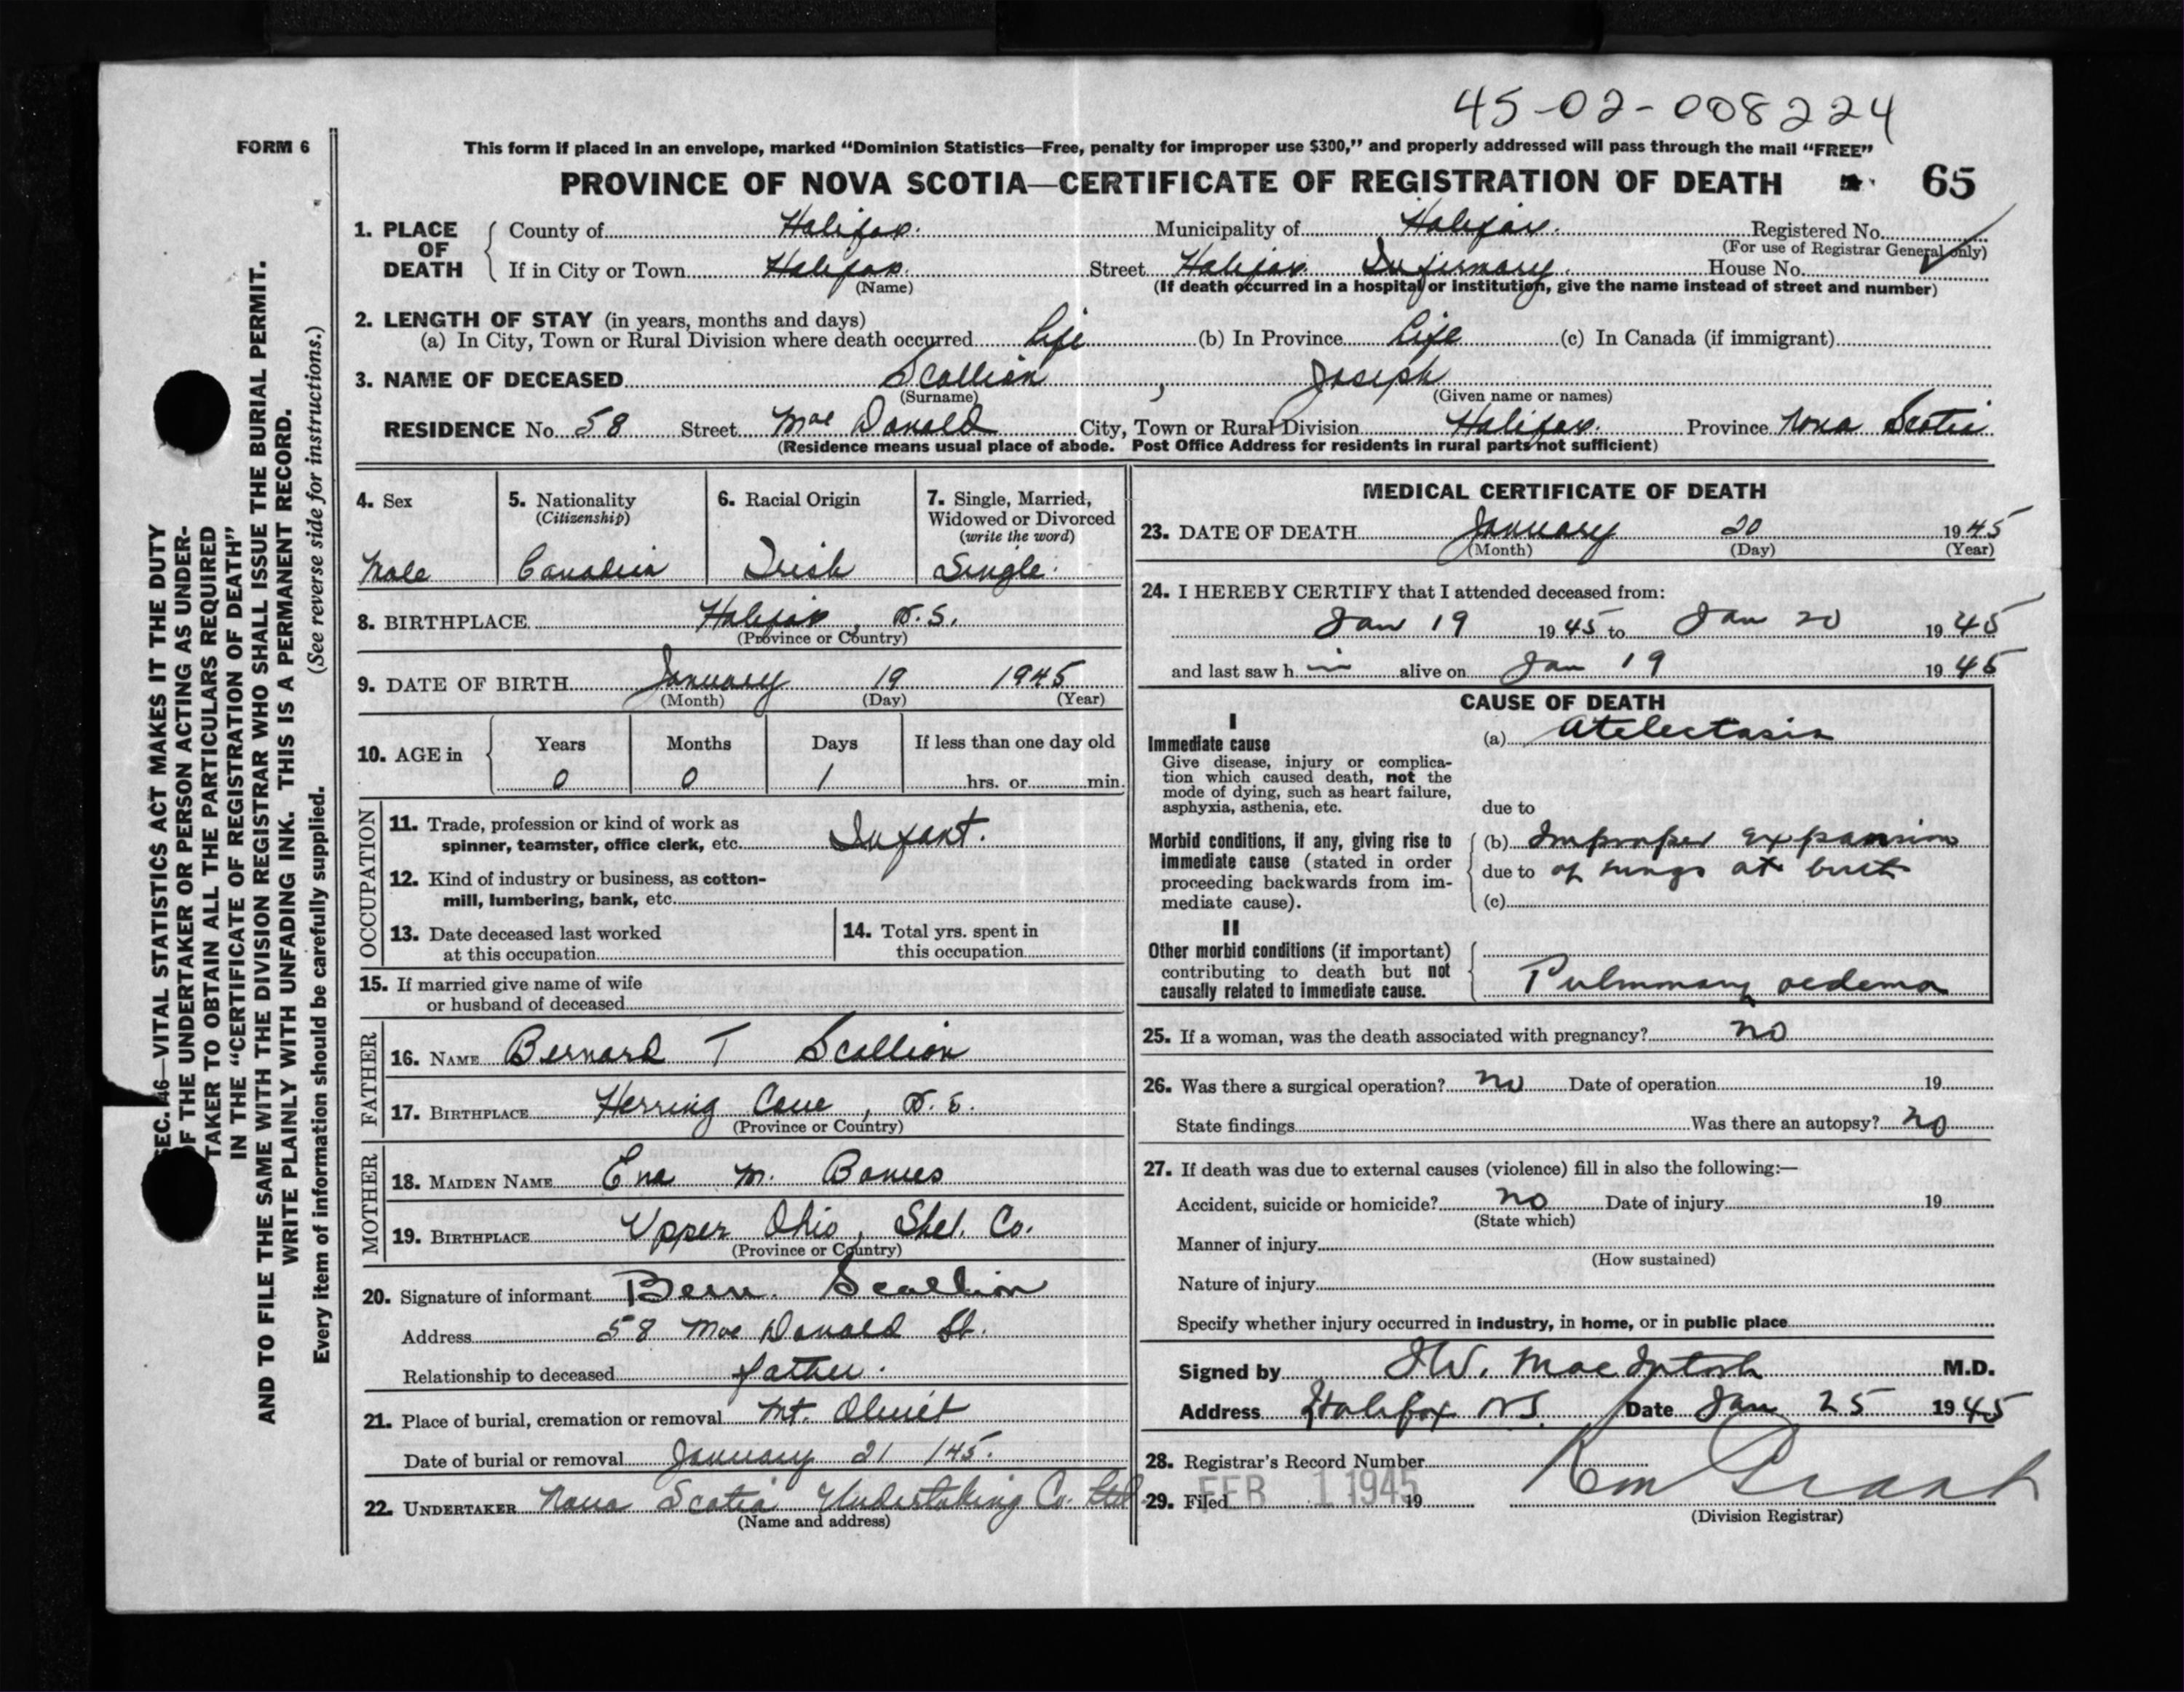 45-02-008224
FORM 6
This form if placed in an envelope, marked “Dominion Statistics—Free, penalty for improper use $300,” and properly addressed will pass through the mail “FREE”
PROVINCE OF NOVA SCOTIA—CERTIFICATE OF REGISTRATION OF DEATH 65
1. PLACE OF DEATH
County of Halifax. Municipality of Halifax. Registered No.
(For use of Registrar General only)
If in City or Town Halifax. Street Halifax Infirmary. House No.
(Name) (If death occurred in a hospital or institution, give the name instead of street and number)
2. LENGTH OF STAY (in years, months and days)
(a) In City, Town or Rural Division where death occurred Life (b) In Province Life (c) In Canada (if immigrant)
3. NAME OF DECEASED Scallion , Joseph
(Surname) (Given name or names)
RESIDENCE No. 58 Street Mac Donald City, Town or Rural Division Halifax. Province Nova Scotia
(Residence means usual place of abode. Post Office Address for residents in rural parts not sufficient)
4. Sex
Male
5. Nationality
(Citizenship)
Canadian
6. Racial Origin
Irish
7. Single, Married,
Widowed or Divorced
(write the word)
Single.
8. BIRTHPLACE Halifax, N.S.
(Province or Country)
9. DATE OF BIRTH January 19 1945
(Month) (Day) (Year)
10. AGE in
Years Months Days If less than one day old
0 0 1 hrs. or min.
OCCUPATION
11. Trade, profession or kind of work as
spinner, teamster, office clerk, etc. Infant.
12. Kind of industry or business, as cotton-
mill, lumbering, bank, etc.
13. Date deceased last worked
at this occupation
14. Total yrs. spent in
this occupation
15. If married give name of wife
or husband of deceased
FATHER
16. NAME Bernard T Scallion
17. BIRTHPLACE Herring Cove, N.S.
(Province or Country)
MOTHER
18. MAIDEN NAME Ena M.
19. BIRTHPLACE Upper Ohio, Shel. Co.
(Province or Country)
20. Signature of informant Bern. Scallion
Address 58 Mac Donald St.
Relationship to deceased father.
21. Place of burial, cremation or removal Mt. Olivet
Date of burial or removal January 21 /45.
22. UNDERTAKER Nova Scotia Undertaking Co. Ltd
(Name and address)
MEDICAL CERTIFICATE OF DEATH
23. DATE OF DEATH January 20 1945
(Month) (Day) (Year)
24. I HEREBY CERTIFY that I attended deceased from:
Jan 19 1945 to Jan 20 1945
and last saw h im alive on Jan 19 1945
CAUSE OF DEATH
I
Immediate cause
Give disease, injury or complica-
tion which caused death, not the
mode of dying, such as heart failure,
asphyxia, asthenia, etc.
(a) Atelectasis
due to
Morbid conditions, if any, giving rise to
immediate cause (stated in order
proceeding backwards from im-
mediate cause).
(b) Improper expansion
due to of lungs at birth
(c)
II
Other morbid conditions (if important)
contributing to death but not
causally related to immediate cause.
Pulmonary oedema
25. If a woman, was the death associated with pregnancy? no
26. Was there a surgical operation? no Date of operation 19
State findings Was there an autopsy? no
27. If death was due to external causes (violence) fill in also the following:—
Accident, suicide or homicide? no Date of injury 19
(State which)
Manner of injury
(How sustained)
Nature of injury
Specify whether injury occurred in industry, in home, or in public place
Signed by J W. MacIntosh M.D.
Address Halifax NS. Date Jan 25 1945
28. Registrar's Record Number
29. Filed FEB 1 1945 19
(Division Registrar)
SEC. 46—VITAL STATISTICS ACT MAKES IT THE DUTY
OF THE UNDERTAKER OR PERSON ACTING AS UNDER-
TAKER TO OBTAIN ALL THE PARTICULARS REQUIRED
IN THE “CERTIFICATE OF REGISTRATION OF DEATH”
AND TO FILE THE SAME WITH THE DIVISION REGISTRAR WHO SHALL ISSUE THE BURIAL PERMIT.
WRITE PLAINLY WITH UNFADING INK. THIS IS A PERMANENT RECORD.
Every item of information should be carefully supplied. (See reverse side for instructions.)